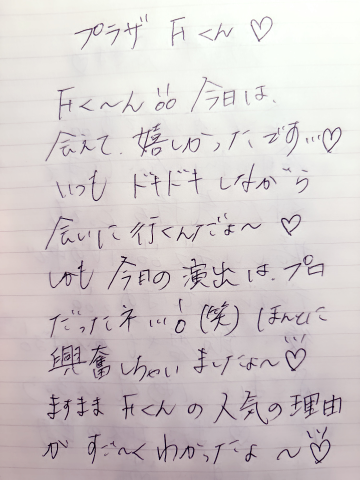 プラザ Fくん♡
Fく〜ん!! 今日は、
会えて、嬉しかったです…♡
いつも ドキドキしながら
会いに行くんだょ〜♡
しかも 今日の演出は、プロ
だったネ…!(笑) ほんとに
興奮しちゃいましたょ〜♡
ますます Fくんの人気の理由
が すご〜くわかったょ〜♡